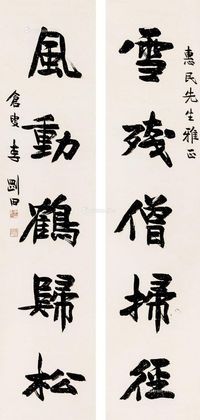 惠民先生雅正
雪殘僧掃徑
風動鶴歸松
李剛田